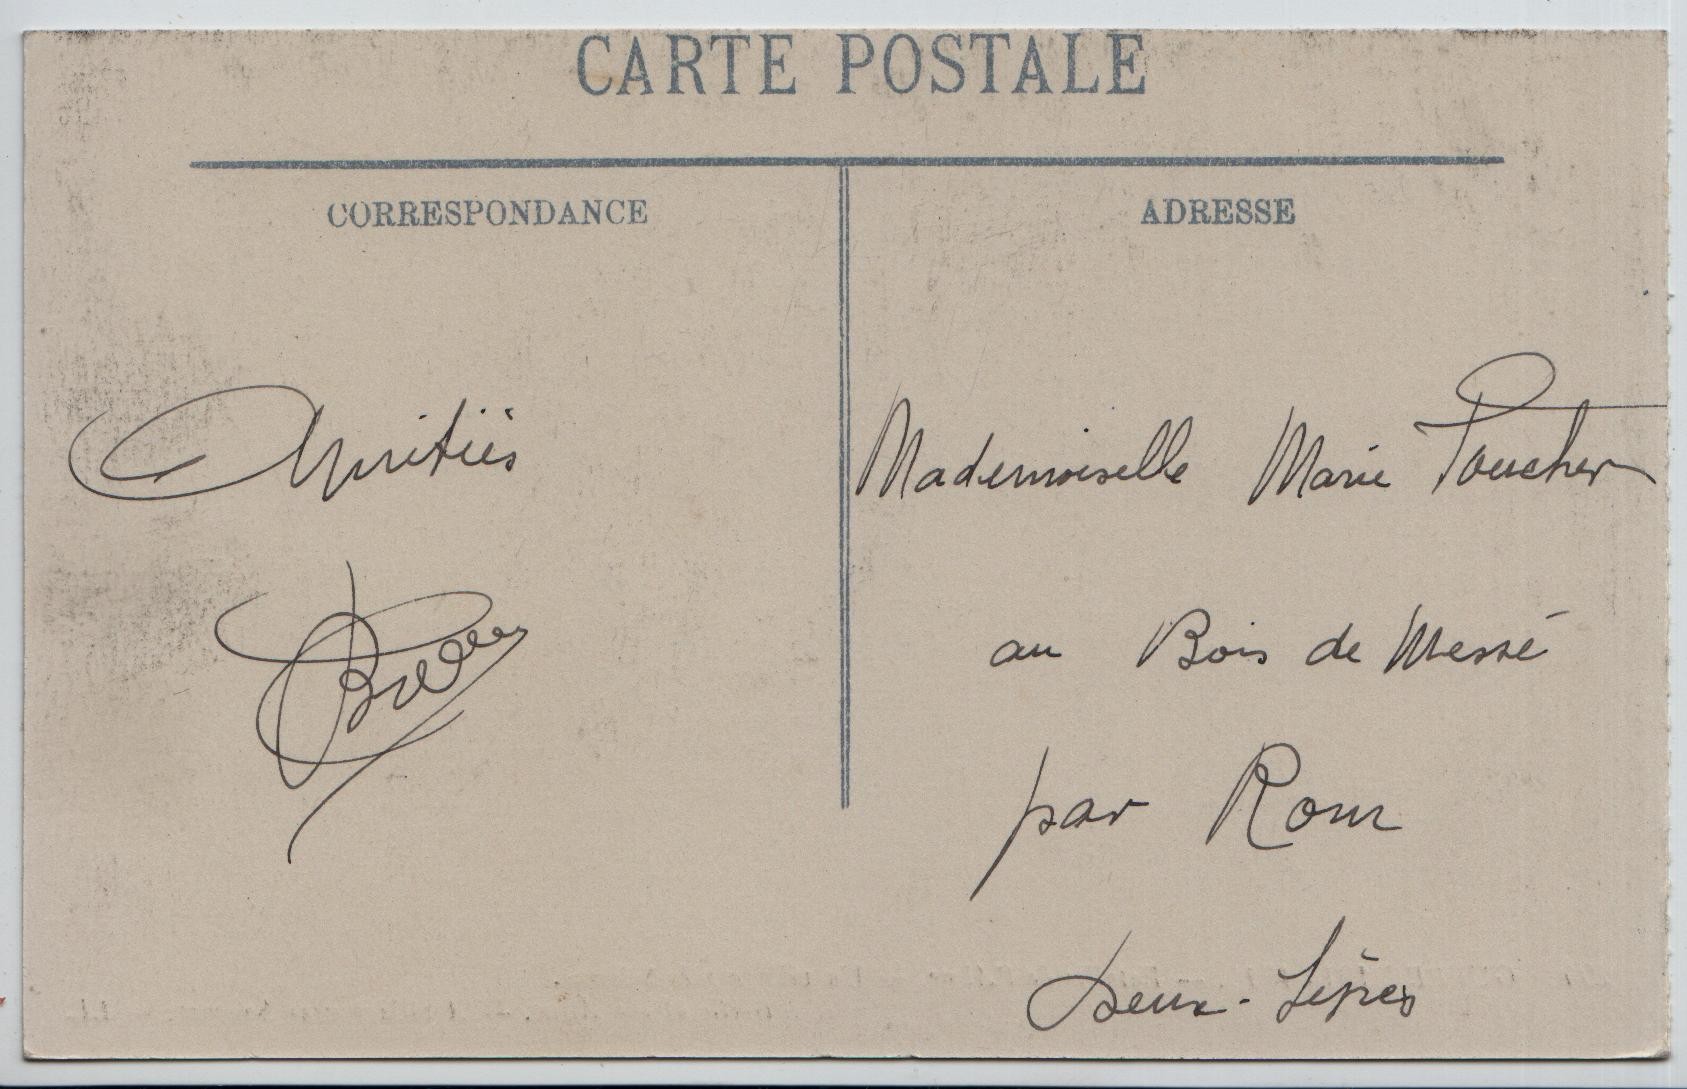 CARTE POSTALE
CORRESPONDANCE
Amitiés
ADRESSE
Mademoiselle Marie
au Bois de Messé
par Rom
Deux-Sèvres